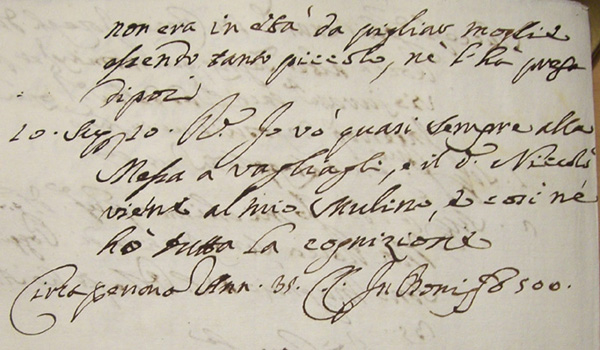 non era in età da pigliar moglie
essendo tanto piccolo, nè l'hà presa
dipoi
20. R. Io vò quasi sempre alla
Messa a vagliagli, e il d. Niccolò
viene al mio Mulino, e così nè
hò tutta la cognizione
Circa personam Ann. 35. In Bonis 500.